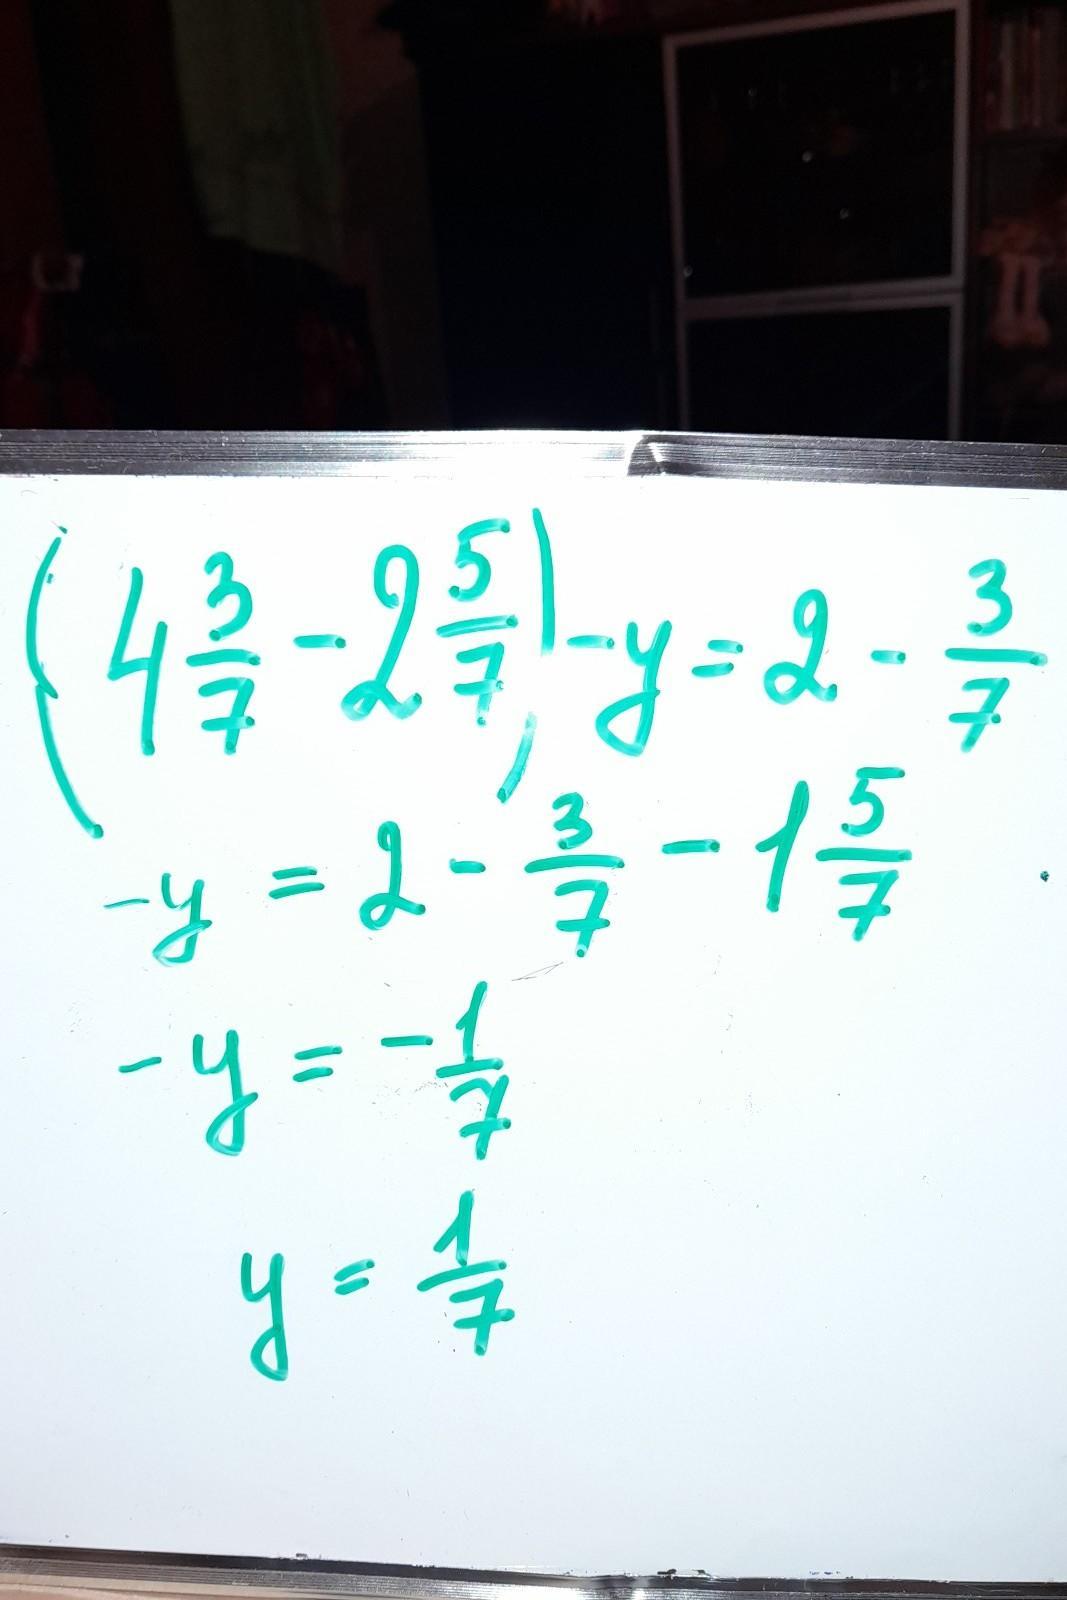 (4 3/7 - 2 5/7) - y = 2 - 3/7
-y = 2 - 3/7 - 1 5/7
-y = - 1/7
y = 1/7